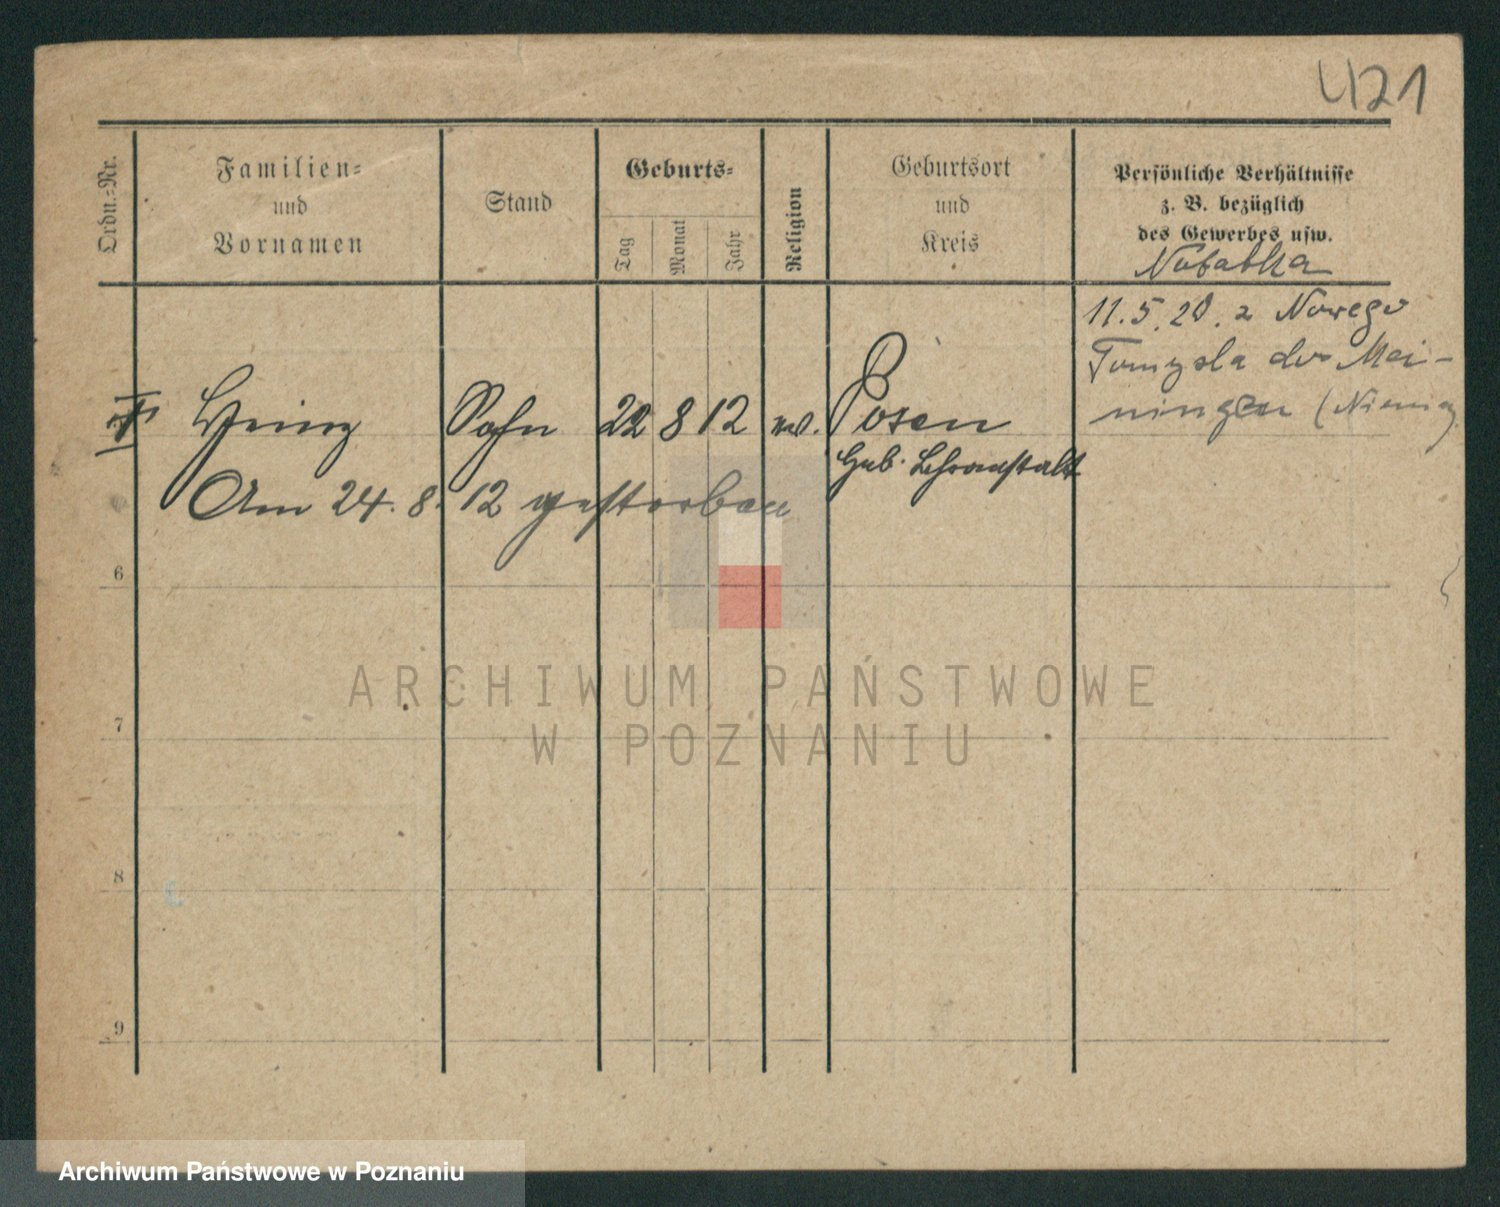 421
Ordn.-Nr.
Familien-
und
Vornamen
Stand
Geburts-
Tag
Monat
Jahr
Religion
Geburtsort
und
Kreis
Persönliche Verhältnisse
z. B. bezüglich
des Gewerbes usw.
11.5.20. z Nowego
Tomysla do Mei-
ningen (Niemcy
Heinz Sohn 22 8 12 Posen
Geb. Lehranstalt
Am 24. 8. 12 gestorben
6
7
8
9
ARCHIWUM PAŃSTWOWE
W POZNANIU
Archiwum Państwowe w Poznaniu